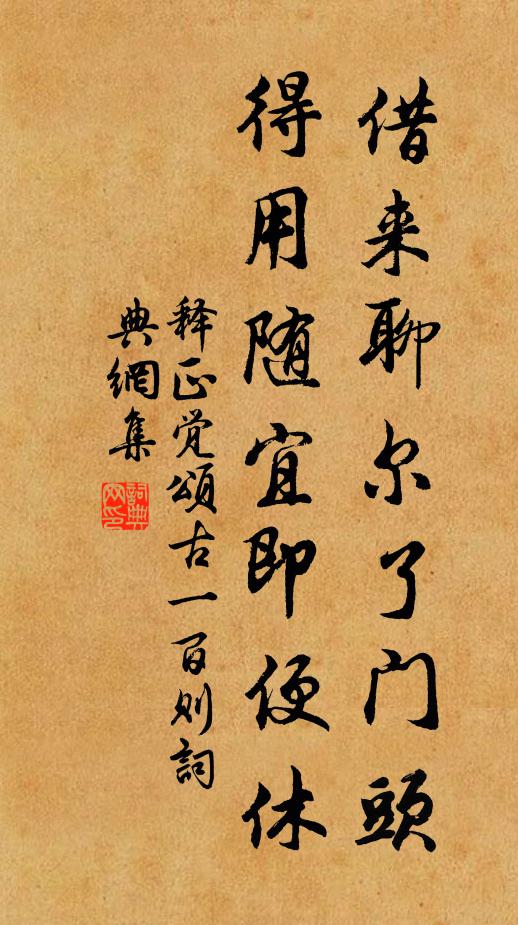 借来聊尔了门頭
得用随宜即便休
释正觉頌古一百则詞
典網集
詞典网印